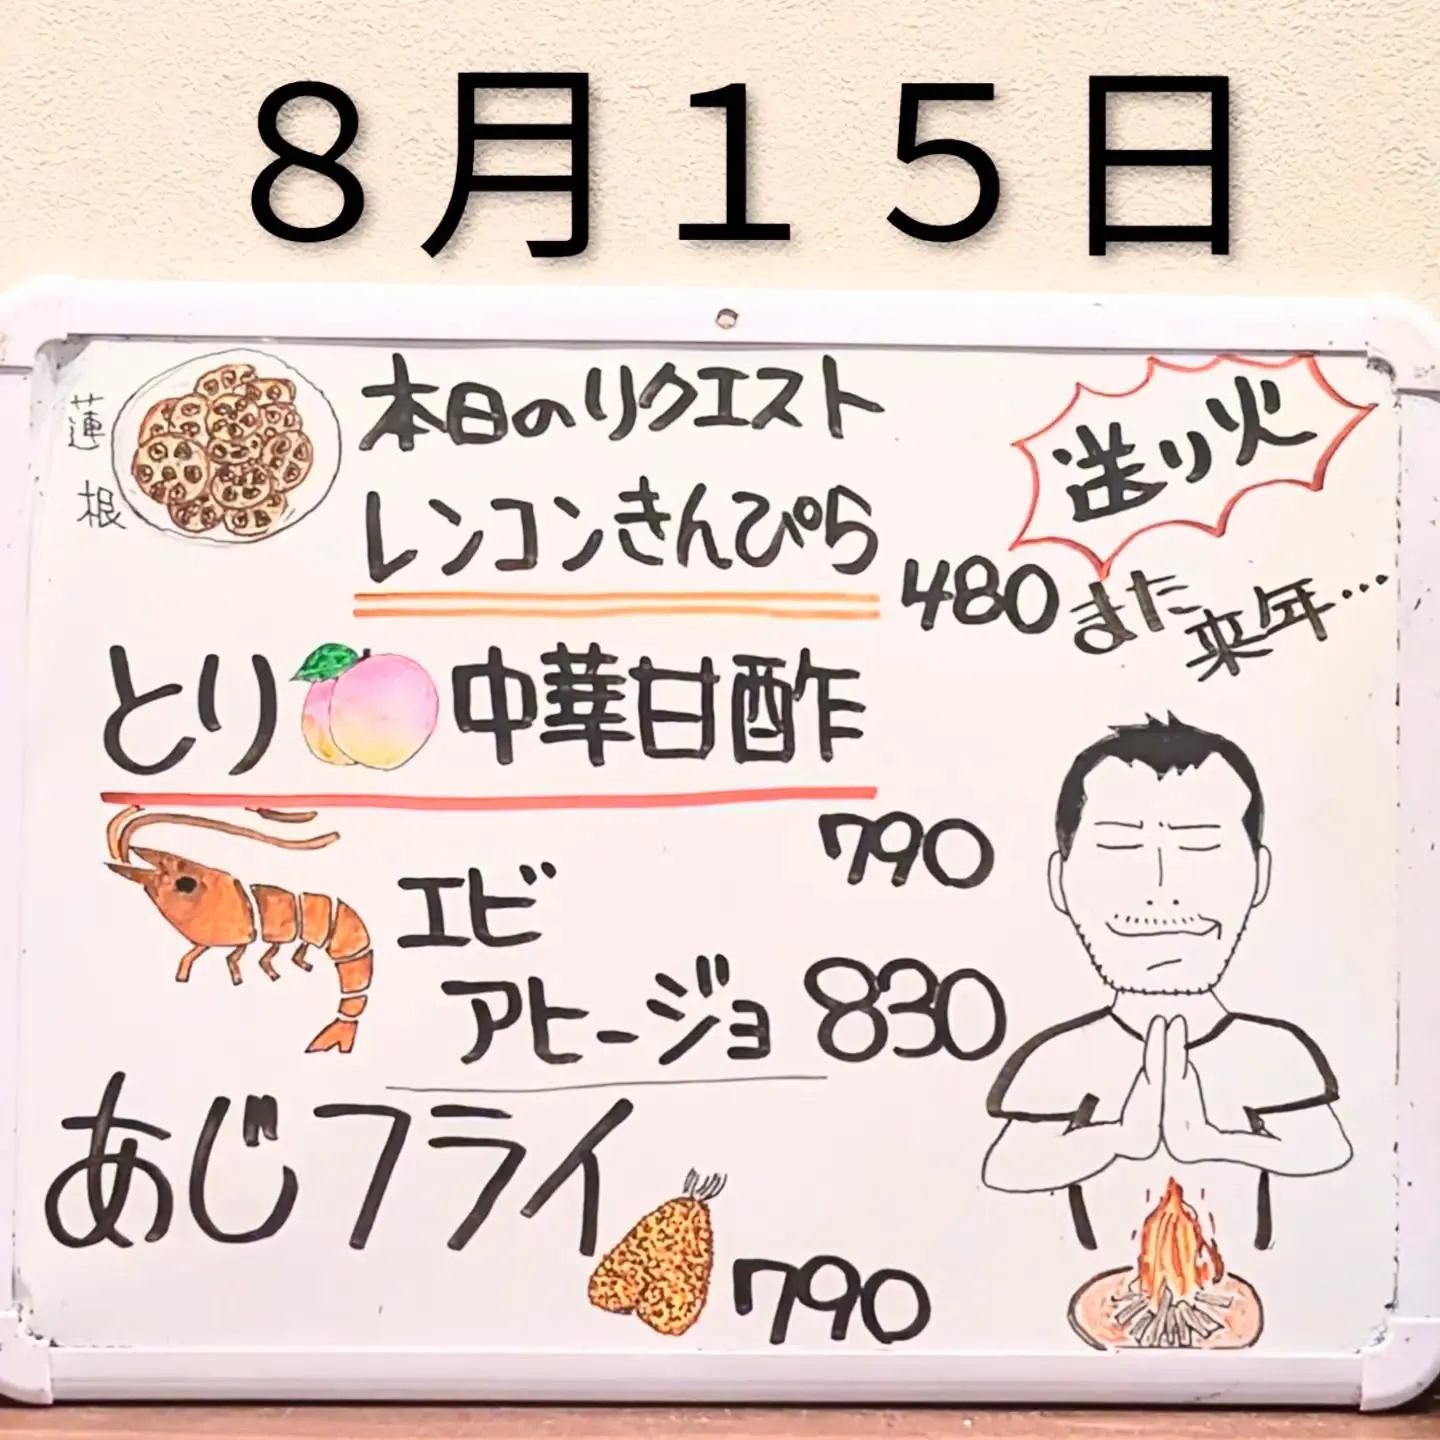 8月15日
蓮根
本日のリクエスト
レンコンきんぴら
480
送り火
また来年…
とり 中華甘酢
790
エビ
アヒージョ 830
あじフライ
790